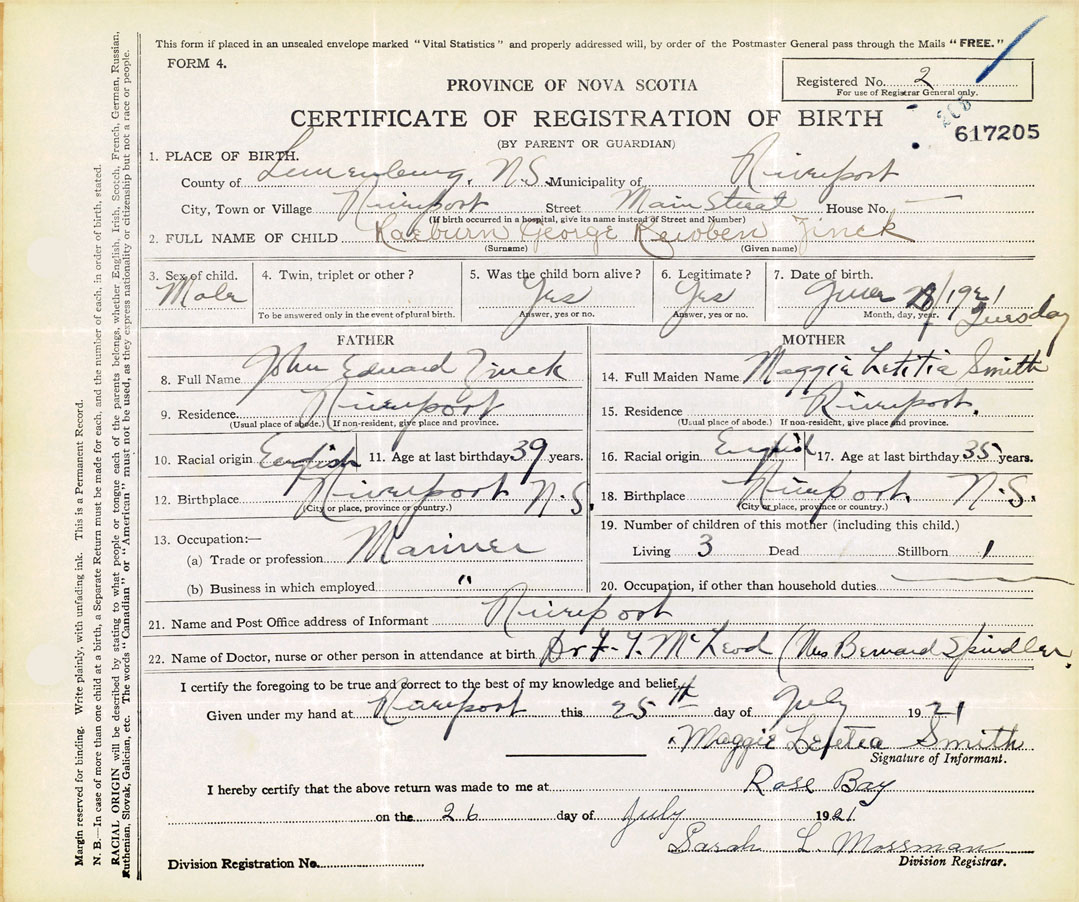 This form if placed in an unsealed envelope marked "Vital Statistics" and properly addressed will, by order of the Postmaster General pass through the Mails "FREE."
FORM 4.
Registered No. 2
For use of Registrar General only.
PROVINCE OF NOVA SCOTIA
CERTIFICATE OF REGISTRATION OF BIRTH
617205
(BY PARENT OR GUARDIAN)
1. PLACE OF BIRTH.
County of Lunenburg, N.S. Municipality of Riverport
City, Town or Village Riverport Street Main Street House No. —
(If birth occurred in a hospital, give its name instead of Street and Number)
2. FULL NAME OF CHILD Raeburn George Zinck
(Surname) (Given name)
3. Sex of child. 4. Twin, triplet or other? 5. Was the child born alive? 6. Legitimate? 7. Date of birth.
Male Yes Yes 1921
To be answered only in the event of plural birth. Answer, yes or no. Answer, yes or no. Month, day, year.
Tuesday
FATHER
8. Full Name John Edward Zinck
9. Residence Riverport
(Usual place of abode.) If non-resident, give place and province.
10. Racial origin English 11. Age at last birthday 39 years.
12. Birthplace Riverport N.S.
(City or place, province or country.)
13. Occupation:—
(a) Trade or profession Mariner
(b) Business in which employed "
MOTHER
14. Full Maiden Name Maggie Letitia Smith
15. Residence Riverport.
(Usual place of abode.) If non-resident, give place and province.
16. Racial origin English 17. Age at last birthday 35 years.
18. Birthplace Riverport. N.S.
(City or place, province or country.)
19. Number of children of this mother (including this child.)
Living 3 Dead Stillborn 1
20. Occupation, if other than household duties. —
21. Name and Post Office address of Informant Riverport
22. Name of Doctor, nurse or other person in attendance at birth Dr F. T. McLeod (Mrs Bernard Spindler.
I certify the foregoing to be true and correct to the best of my knowledge and belief.
Given under my hand at Riverport this 25th day of July 1921
Maggie Letetea Smith
Signature of Informant.
I hereby certify that the above return was made to me at Rose Bay
on the 26 day of July 1921.
Sarah L. Mossman
Division Registration No. Division Registrar.
Margin reserved for binding. Write plainly, with unfading ink. This is a Permanent Record.
N. B.—In case of more than one child at a birth, a Separate Return must be made for each, and the number of each, in order of birth, stated.
RACIAL ORIGIN will be described by stating to what people or tongue each of the parents belongs, whether English, Irish, Scotch, French, German, Russian,
Ruthenian, Slovak, Galician, etc. The words "Canadian" or "American" must not be used, as they express nationality or citizenship but not a race or people.